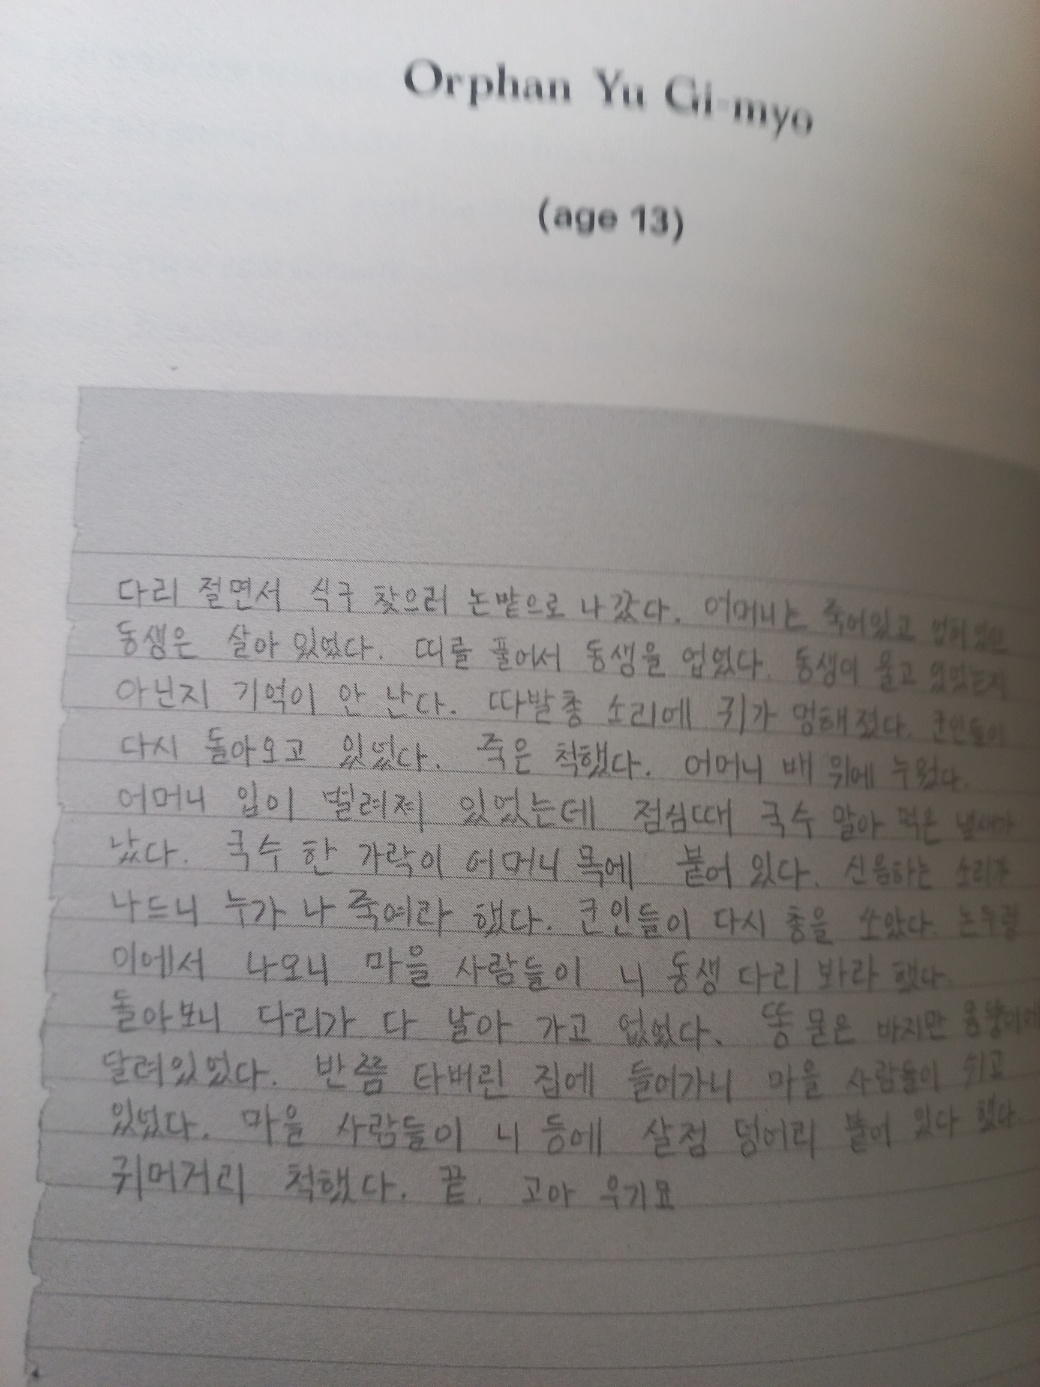 Orphan Yu Gi-myo
(age 13)
다리 절면서 식구 찾으러 논밭으로 나갔다. 어머니는 죽어있고 업혀있던
동생은 살아 있었다. 띠를 풀어서 동생을 업었다. 동생이 울고 있었는지
아닌지 기억이 안 난다. 따발총 소리에 귀가 멍해졌다. 군인들이
다시 돌아오고 있었다. 죽은 척했다. 어머니 배 위에 누웠다.
어머니 입이 벌려져 있었는데 점심때 국수 말아 먹은 냄새가
났다. 국수 한 가락이 어머니 목에 붙어 있다. 신음하는 소리가
나드니 누가 나 죽여라 했다. 군인들이 다시 총을 쏘았다. 논두렁
이에서 나오니 마을 사람들이 니 동생 다리 봐라 했다.
돌아보니 다리가 다 날아 가고 없었다. 똥 묻은 바지만 궁뎅이에
달려있었다. 반쯤 타버린 집에 들어가니 마을 사람들이 쉬고
있었다. 마을 사람들이 니 등에 살점 덩어리 붙어 있다 했다.
귀머거리 척했다. 끝. 고아 우기묘